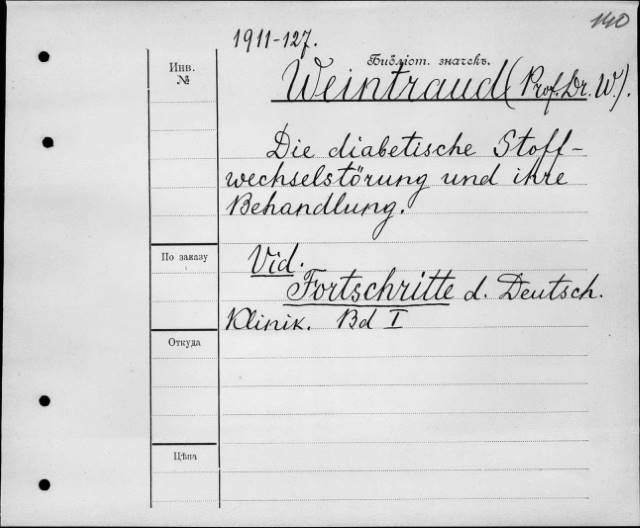 140
1911-127.
Библіот. значекъ.
Инв.
№
Weintraud (Prof. Dr. W.).
Die diabetische Stoff-
wechselstörung und ihre
Behandlung.
По заказу
Vid.
Fortschritte d. Deutsch.
Klinik. Bd I
Откуда
Цѣна